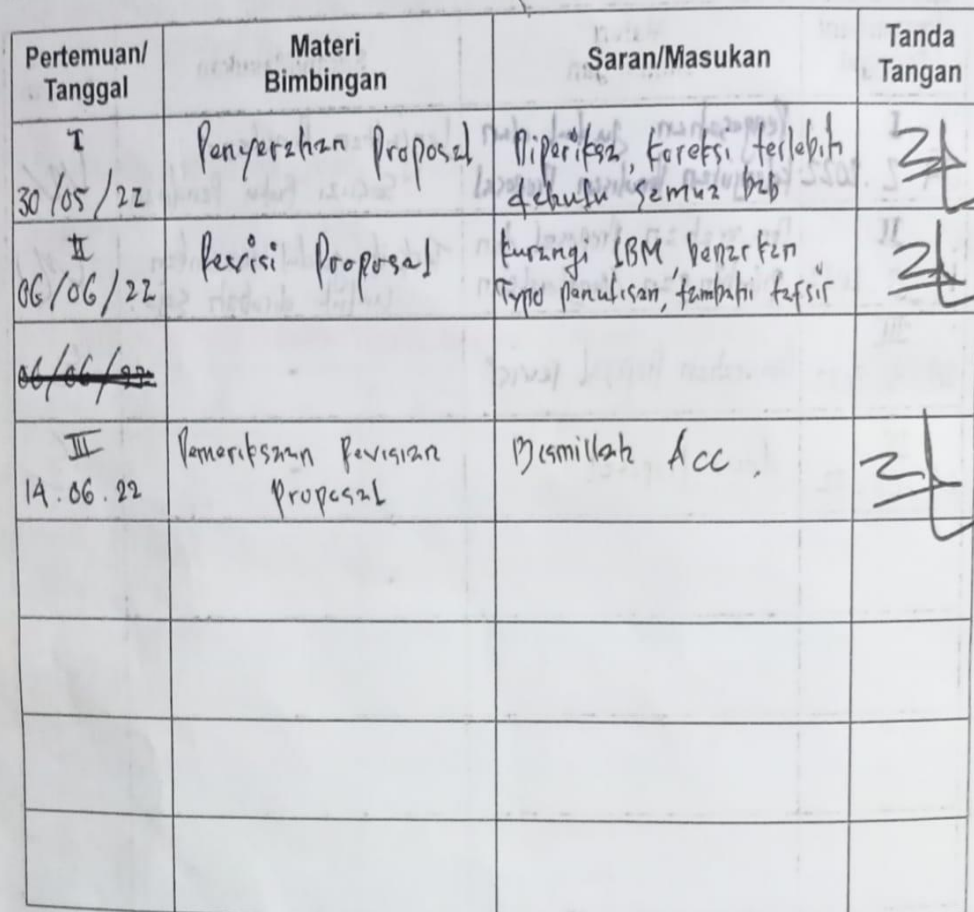 Pertemuan/
Tanggal
Materi
Bimbingan
Saran/Masukan
Tanda
Tangan
I
30/05/22
Penyerahan Proposal
Diperiksa, koreksi terlebih
dahulu semua bab
II
06/06/22
Revisi Proposal
kurangi LBM, benarkan
Typo penulisan, tambahi tafsir
06/06/22
III
14.06.22
Pemeriksaan Revisian
Proposal
Bismillah Acc.